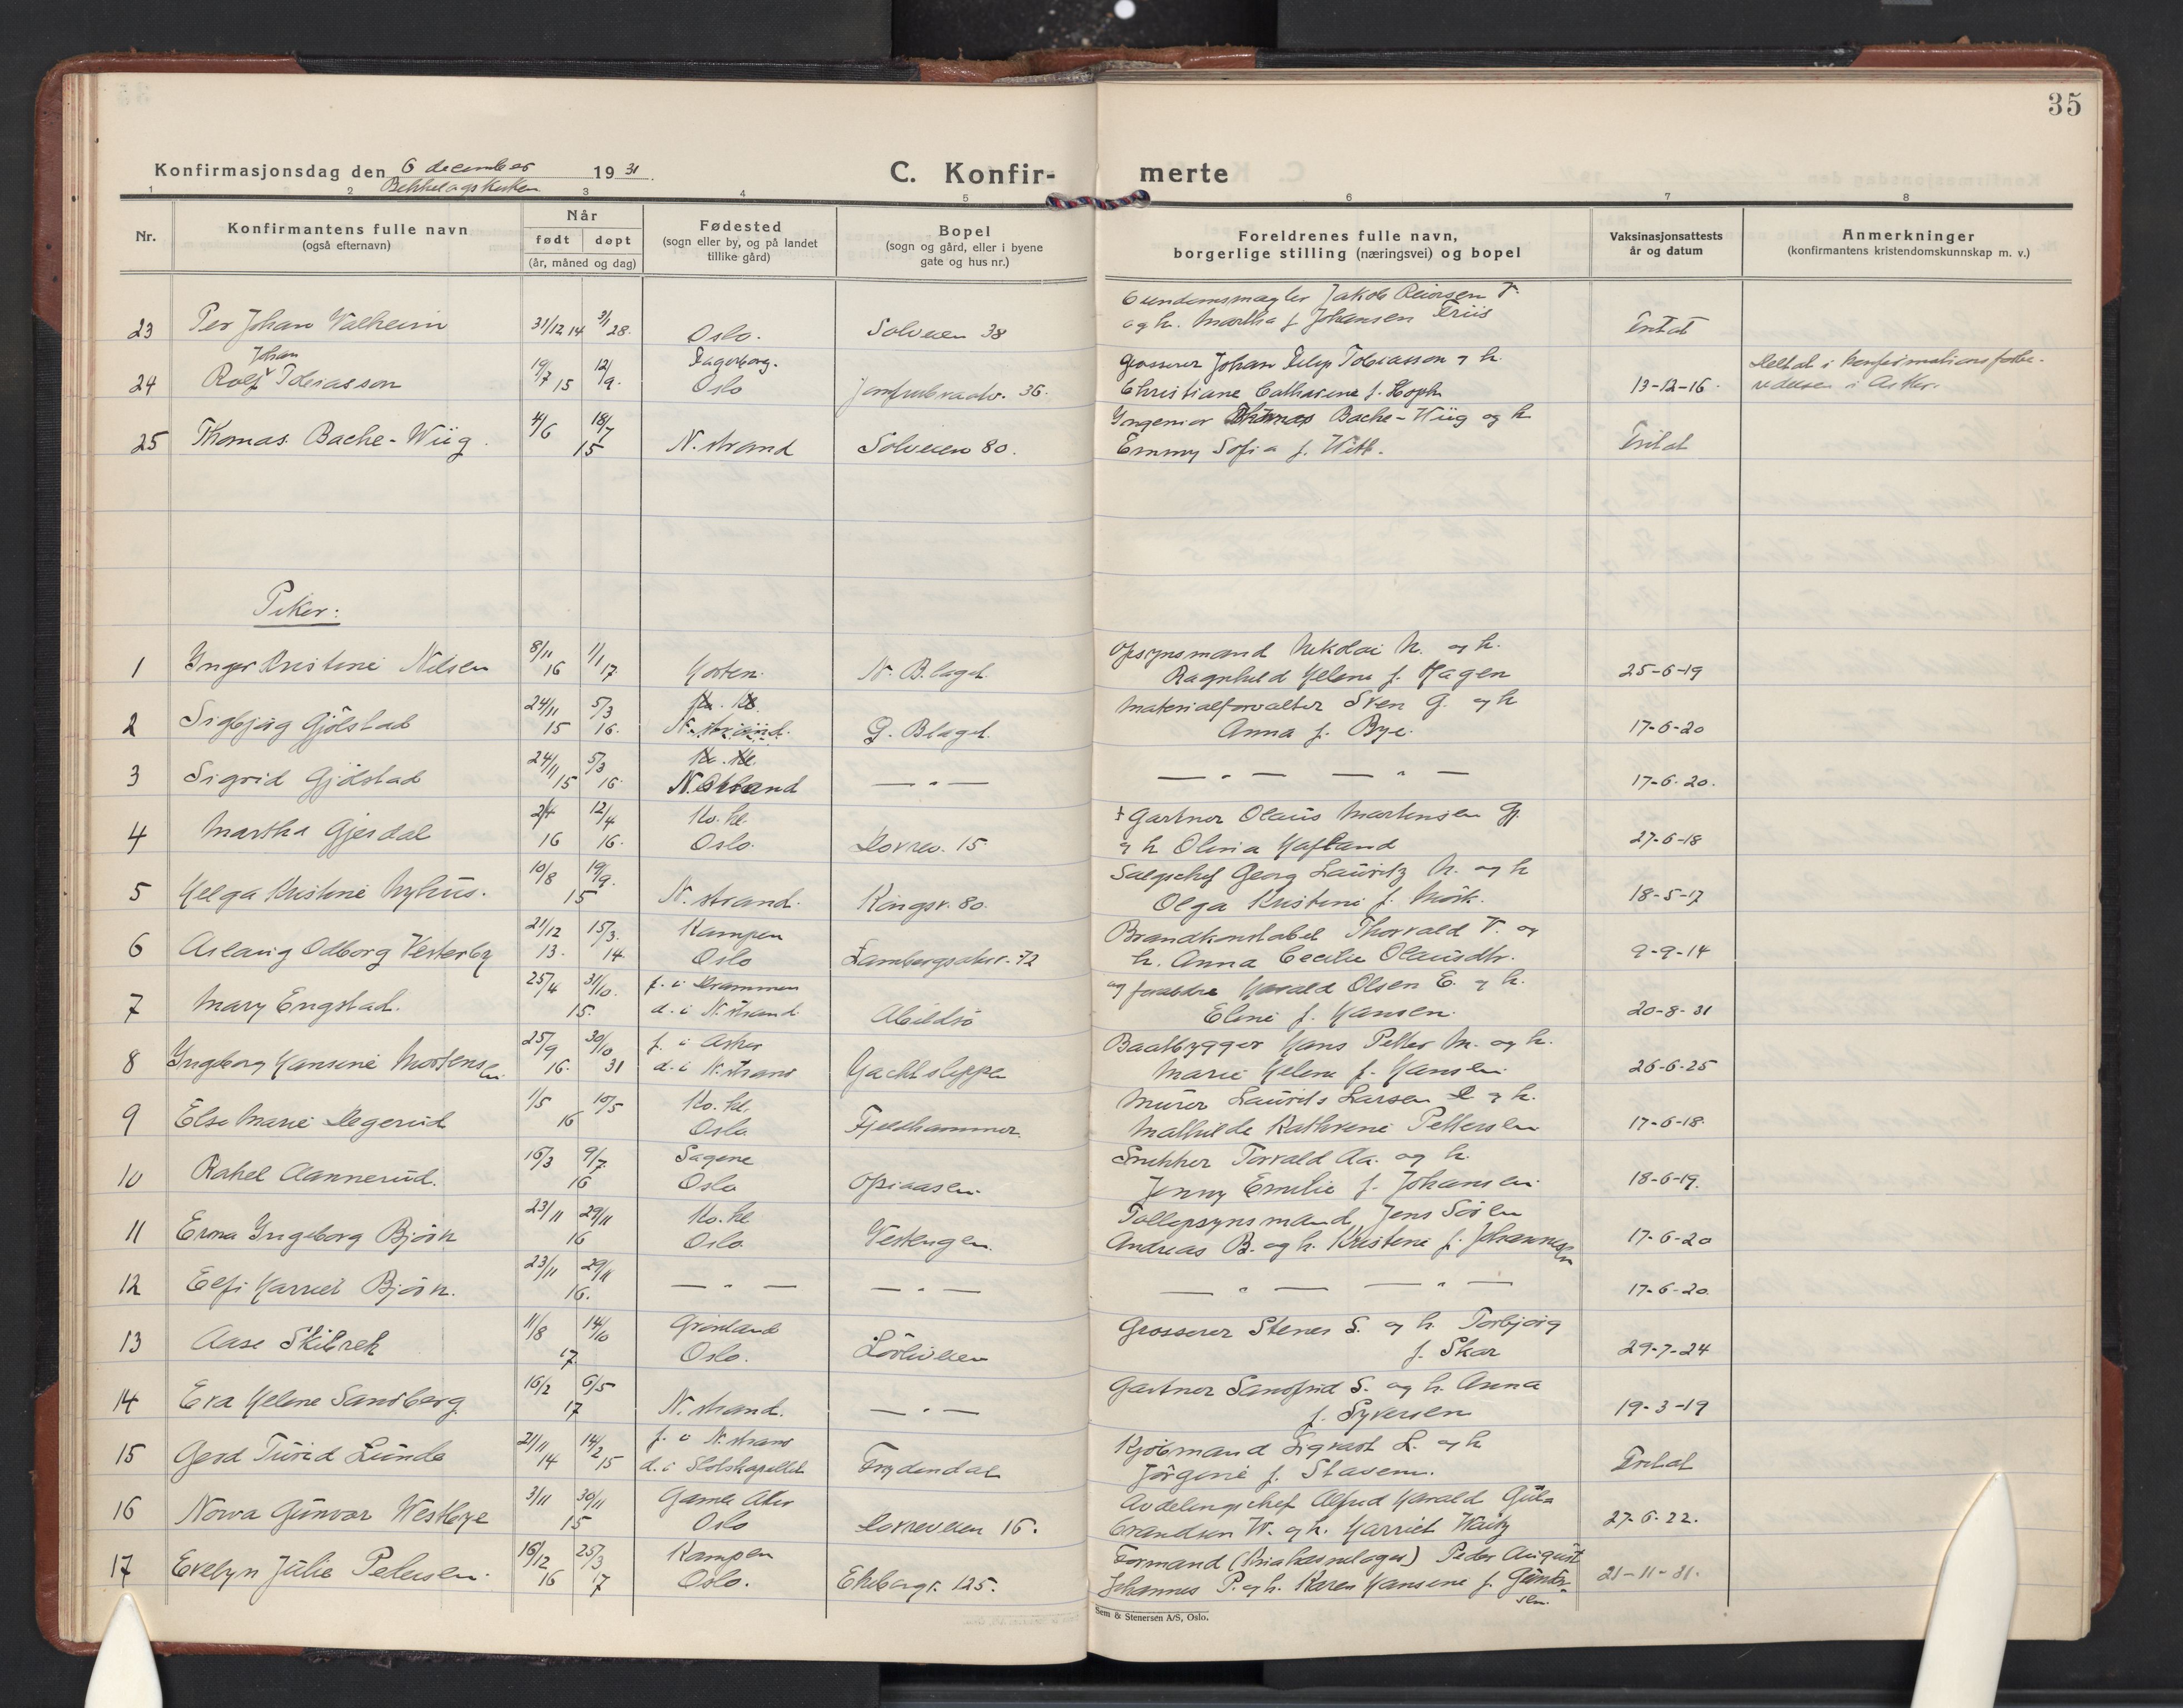 35
Konfirmasjonsdag den 6 december 1931.
Bekkelagskirken
C. Konfir- merte
1 2 3 4 5 6 7 8
Nr.
Konfirmantens fulle navn
(også efternavn)
Når
født døpt
(år, måned og dag)
Fødested
(sogn eller by, og på landet
tillike gård)
Bopel
(sogn og gård, eller i byene
gate og hus nr.)
Foreldrenes fulle navn,
borgerlige stilling (næringsvei) og bopel
Vaksinasjonsattests
år og datum
Anmerkninger
(konfirmantens kristendomskunnskap m. v.)
Jakob V.
23 Per Johan Valheim 31/12 14 3/1 28. Oslo. Solveien 38 og h. Martha f Johansen Friis
Johan Fagerborg. Grosserer Johan Tobiasson og h.
24 Rolf Tobiasson 19/7 15 12/9. Oslo 36. Christiane Catharine f. 13-12-16.
Ingeniør Thomas Bache-Wiig og h
25 Thomas Bache-Wiig. 4/6 18/7 15 N. strand Solveien 80. Emmy Sofia f. Fritat
Piker:
8/11 1/1 Opsynsmand Nikolai N. og h.
1 Inger Kristine Nilsen 16 17. Horten. N. B.laget. Ragnhild Helene f. Hagen 25-6-19
24/11 5/3 Materialforvalter Sven G. og h
2 Sigbjørg Gjölstad 15 16. N. strand. G. Blaget. Anna f. Bye. 17-6-20
24/11 5/3
3 Sigrid Gjölstad 15 16. N. Strand — " — — " — — " — 17-6-20.
2/4 12/4 Ko. kl. † Gartner Olaus Martinsen Gj.
4 Martha Gjerdal 16 16. Oslo. Dovrev. 15. og h Olivia Hafland 27-6-18
10/8 19/9. Salgschef Georg Lauritz N. og h
5 Helga Kristine Nyhus. 15 N. strand. Kongsv. 80. Olga Kristine f. Mörk. 18-5-17
21/12 15/3. Kampen Brandkonstabel Thorvald V. og
6 Aslaug Odborg Vesterby 13. 14. Oslo 72 h. Anna Cecilie Olausdtr. 9-9-14
25/4 31/10. f. i Drammen Harald Olsen E. og h.
7 Mary Engstad. 15. d. i N. strand Abildsö Eline f. Hansen. 20-8-31
25/9 30/10 f. i Asker Baatbygger Hans Petter M. og h.
8 Ingeborg Hansine Mortensen 16. 31 d. i N. strand Yachtslippen Marie Helene f. Hansen. 26-6-25
1/5 10/5 Ko. kl. Murer Laurits Larsen D og h.
9 Else Marie Degerud 16 Oslo Fjeldhammer. Mathilde Kathrine Pettersen 17-6-18.
16/3 9/7. Sagene Snekker Torvald Aa. og h.
10 Rakel Aannerud. 16 Oslo Opsaasen. Jenny Emilie f. Johansen 18-6-19.
23/11 29/11 Ko. kl Tollopsynsmand Jens Sören
11 Erna Ingeborg Björk 16 Oslo. Vestengen. Andreas B. og h. Kristine f. Johannesen 17-6-20
23/11 29/11
12 Elfi Harriet Björk. 16. — " — — " — — " — — " — 17-6-20.
11/8 14/10 Grönland Grosserer Stener S. og h. Torbjörg
13 Aase Skibrek 17 Oslo. Lövliveien f. Skar 29-7-24
16/2 6/5 Gartner Sansfrid S. og h. Anna
14 Eva Helene Sandberg. 17 N. strand. — " — f. Syversen 19-3-19
21/11 14/2 f. i N. strand Kjöbmand Sigvart L. og h
15 Gerd Turid Lunde 14 15 d. i Slotskapellet Frydendal Jörgine f. Stavem. Fritat
3/11 30/11 Gamle Aker Avdelingschef Alfred Harald Gul-
16 Nova Gunvor Westbye 15 Oslo Dovreveien 16. brandsen W. og h. Harriet 27-6-22.
16/12 25/3 Kampen Formand Peder August
17 Evelyn Julie Petersen. 16 17 Oslo. Ekbergv. 125. Johannes P. og h. Karen Hansine f. Gunder- 21-11-31.
sen.
Sem & Stenersen A/S, Oslo.